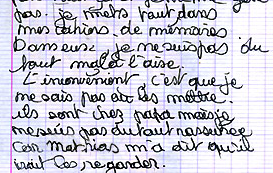 pas. je mets tout dans
mes cahiers de mémoires
Dans eux je ne suis pas du
tout mal a l'aise.
L'inconvénient c'est que je
ne sais pas où les mettre.
ils sont chez papa mais je
ne suis pas du tout rassurée
car Mathias m'a dit qu'il
irait les regarder.